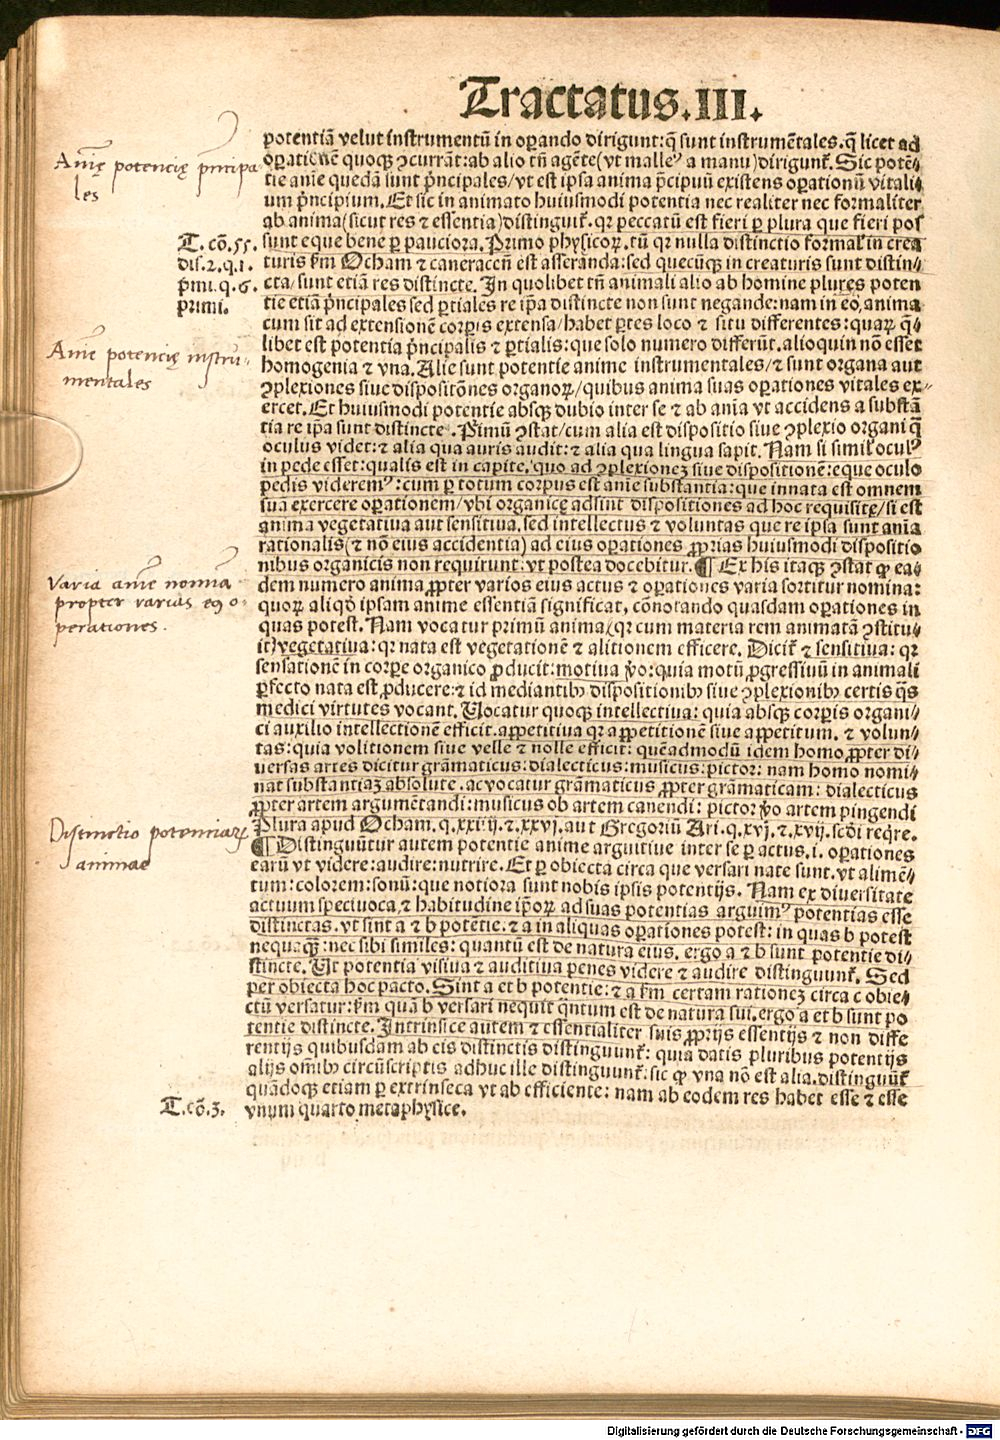 Tractatus.III.
potentiā velut instrumentū in opando dirigunt: q̄ sunt instrumētales. q̄ licet ad
opationē quoqꝫ ꝯcurrāt: ab alio tn̄ agēte (vt malleꝰ a manu) dirigunt᷑. Sic potē⸗
tie anīe quedā sunt p̄ncipales / vt est ipsa anima p̄cipuū existens opationū vitali
um p̄ncipium. Et sic in animato huiusmodi potentia nec realiter nec formaliter
ab anima (sicut res ⁊ essentia) distinguit᷑. qꝛ peccatū est fieri ꝑ plura que fieri pos
sunt eque bene ꝑ pauciora. Primo physicoꝝ. tū qꝛ nulla distinctio formal᷑ in crea
turis km̄ Ocham ⁊ cameraceñ est asserāda: sed quecūqꝫ in creaturis sunt distin⸗
cta / sunt etiā res distincte. In quolibet tn̄ animali alio ab homine plures poten
tie etiā p̄ncipales sed ꝑtiales re ip̄a distincte non sunt negande: nam in eo, anima
cum sit ad extensionē corpis extensa / habet ꝑtes loco ⁊ situ differentes: quaꝝ q̄⸗
libet est potentia p̄ncipalis ⁊ ꝑtialis: que solo numero differūt. alioquin nō esset
homogenia ⁊ vna. Alie sunt potentie anime instrumentales / ⁊ sunt organa aut
ꝯplexiones siue dispositōnes organoꝝ / quibus anima suas opationes vitales ex⸗
ercet. Et huiusmodi potentie absqꝫ dubio inter se ⁊ ab anīa vt accidens a substā
tia re ip̄a sunt distincte. Pimū ꝯstat / cum alia est dispositio siue ꝯplexio organi q̄
oculus videt: ⁊ alia qua auris audit: ⁊ alia qua lingua sapit. Nam si simil᷑ oculꝰ
in pede esset: qualis est in capite, quo ad ꝯplexionez siue dispositionē: eque oculo
pedis videremꝰ: cum ꝑ totum corpus est anīe substantia: que innata est omnem
suā exercere opationem / vbi organice adsint dispositiones ad hoc requisite / si est
anima vegetatiua aut sensitiua. sed intellectus ⁊ voluntas que re ipsa sunt anīa
rationalis (⁊ nō eius accidentia) ad eius opationes ꝓprias huiusmodi dispositio
nibus organicis non requirunt: vt postea docebitur. ¶ Ex his itaqꝫ ꝯstat ꝙ ea⸗
dem numero anima ꝓpter varios eius actus ⁊ opationes varia sortitur nomina:
quoꝝ aliqđ ipsam anime essentiā significat, cōnotando quasdam opationes in
quas potest. Nam vocatur primū anima (qꝛ cum materia rem animatā ꝯstitu⸗
it) vegetatiua: qꝛ nata est vegetationē ⁊ alitionem efficere. Dicit᷑ ⁊ sensitiua: qꝛ
sensationē in corpe organico ꝓducit: motiua v̊o: quia motū ꝓgressiuū in animali
ꝑfecto nata est ꝓducere: ⁊ id mediantibꝫ dispositionibꝫ siue ꝯplexionibꝫ certis q̄s
medici virtutes vocant. Vocatur quoqꝫ intellectiua: quia absqꝫ corpis organi⸗
ci auxilio intellectionē efficit. appetitiua qꝛ appetitionē siue appetitum. ⁊ volun⸗
tas: quia volitionem siue velle ⁊ nolle efficit: quēadmodū idem homo ꝓpter di⸗
uersas artes dicitur grāmaticus: dialecticus: musicus: pictor: nam homo nomi⸗
nat substantiaz absolute. ac vocatur grāmaticus ꝓpter grāmaticam: dialecticus
ꝓpter artem argumētandi: musicus ob artem canendi: pictor v̊o artem pingendi
Plura apud Ocham. q. xxiiij. ⁊. xxvj. aut Gregoriū Ari. q. xvj. ⁊. xvij. scđi reqre.
¶ Distinguūtur autem potentie anime arguitiue inter se ꝑ actus. i. opationes
earū vt videre: audire: nutrire. Et ꝑ obiecta circa que versari nate sunt. vt alimē⸗
tum: colorem: sonū: que notiora sunt nobis ipsis potentijs. Nam ex diuersitate
actuum speciuoca, ⁊ habitudine ip̄oꝝ ad suas potentias arguimꝰ potentias esse
distinctas. vt sint a ⁊ b potētie. ⁊ a in aliquas opationes potest: in quas b potest
nequaqꝫ: nec sibi similes: quantū est de natura eius. ergo a ⁊ b sunt potentie di⸗
stincte. Vt potentia visiua ⁊ auditiua penes videre ⁊ audire distinguunt᷑. Sed
per obiecta hoc pacto. Sint a et b potentie: ⁊ a km̄ certam rationez circa c obie⸗
ctū versatur: km̄ quā b versari nequit q̄ntum est de natura sui. ergo a et b sunt po
tentie distincte. Intrinsice autem ⁊ essentialiter suis ꝓprijs essentijs ⁊ non diffe
rentijs quibusdam ab eis distinctis distinguunt᷑: quia datis pluribus potentijs
alijs omībꝫ circūscriptis adhuc ille distinguunt᷑: sic ꝙ vna nō est alia. distinguūt᷑
quādoqꝫ etiam ꝑ extrinseca vt ab efficiente: nam ab eodem res habet esse ⁊ esse
vnum quarto metaphysice.
Anīę potencię pn̄cipa
les
T. cō. 55.
dis. 2. q. 1.
p̄mi. q. 6.
primi.
Anīe potencię instru⸗
mentales
Varia anīe nomīa
propter varias eꝯ o⸗
perationes.
Distinctio potenciarꝝ
animae
T. cō. 3.
Digitalisierung gefördert durch die Deutsche Forschungsgemeinschaft - DFG